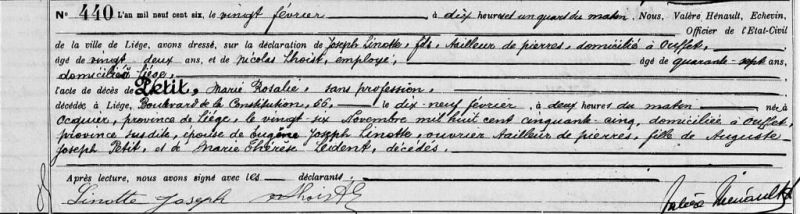 N° 440 L'an mil neuf cent six, le vingt février à dix heures et un quart du matin, Nous, Valère Hénault, Echevin,
Officier de l'Etat-Civil
de la ville de Liége, avons dressé, sur la déclaration de Joseph Linotte, fils, tailleur de pierres, domicilié à Ouffet,
âgé de vingt deux ans, et de Nicolas Lhoist, employé, âgé de quarante-sept ans,
domiciliés Liége,
l'acte de décès de Petit, Marie Rosalie, sans profession,
décédée à Liége, Boulevard de la Constitution, 66, le dix neuf février, à deux heures du matin née à
Ocquier, province de Liége, le vingt six Novembre mil huit cent cinquante-cinq, domiciliée à Ouffet,
province susdite, épouse de Eugène Joseph Linotte, ouvrier tailleur de pierres, fille de Auguste
Joseph Petit, et de Marie Thérèse Leident, décédés.
Après lecture, nous avons signé avec les déclarants.
Linotte Joseph Lhoist Valère Hénault